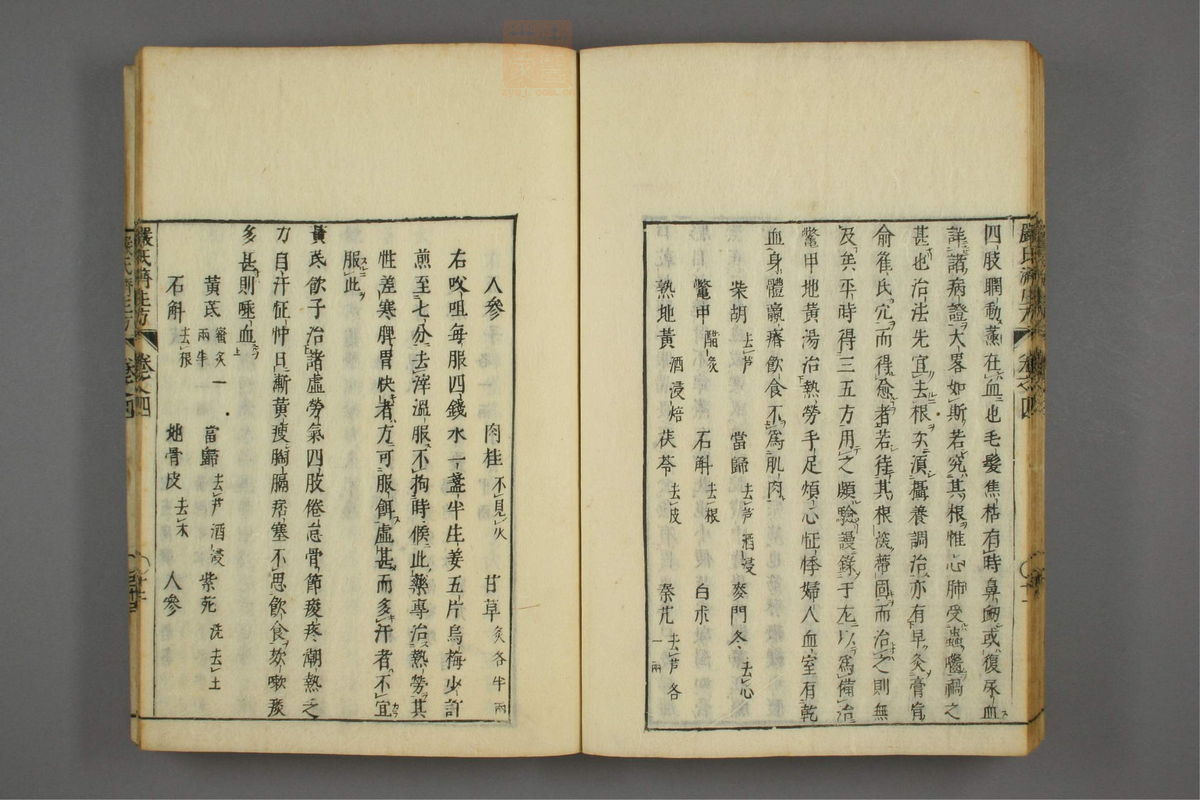 四肢瞤動蒸在血也毛髮焦枯有時鼻衂或復尿血
詳諸病證大畧如斯若究其根惟心肺受蟲囓禍之
甚也治法先宜去根次須攝養調治亦有早灸膏肓
俞崔氏穴而得愈者若待其根深蔕固而治之則無
及矣平時得三五方用之頗驗謾錄于左以爲備治
鱉甲地黃湯治熱勞手足煩心怔悸婦人血室有乾
血身體羸瘠飲食不爲肌肉
柴胡去芦 當歸去芦酒浸 麥門冬去心
鱉甲醋炙 石斛去根 白朮
熟地黃酒浸焙 茯苓去皮 秦艽去芦各一兩
人參 肉桂不見火 甘草炙各半兩
右㕮咀每服四錢水一盞半生姜五片烏梅少許
煎至七分去滓溫服不拘時候此藥專治熱勞其
性差寒脾胃快者方可服餌虛甚而多汗者不宜
服此
黃芪飲子治諸虛勞氣四肢倦怠骨節痠疼潮熱乏
力自汗怔忡日漸黃瘦胸膈痞塞不思飲食欬嗽痰
多甚則唾血
黃芪蜜炙一兩半 當歸去芦酒浸 紫菀洗去土
石斛去根 地骨皮去木 人參
嚴氏濟生方 卷之四